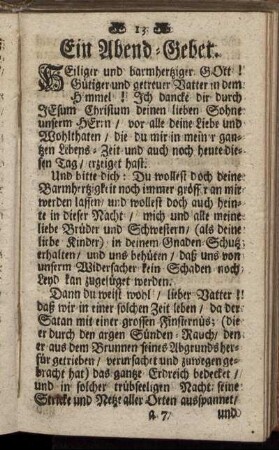 13
Ein Abend-Gebet.
HEiliger und barmhertziger GOtt!
Gütiger und getreuer Vatter in dem
Himmel! Ich dancke dir durch
JEsum Christum deinen lieben Sohne
unserm HErrn / vor alle deine Lieb und
Wohlthaten / die du mir in meiner gan-
tzen Lebens-Zeit und auch noch heute die-
sen Tag / erzeiget hast.
Und bitte dich: Du wollest doch deine
Barmhertzigkeit noch immer grösser an mir
werden lassen / und wollest doch auch hein-
te in dieser Nacht / mich und alle meine
liebe Brüder und Schwestern / (als deine
liebe Kinder) in deinem Gnaden Schutz
erhalten / und uns behüten / daß uns von
unserm Widersacher kein Schaden noch
Leyd kan zugefüget werden.
Dann du weist wohl / lieber Vatter!
daß wir in einer solchen Zeit leben / da der
Satan mit einer grossen Finsternüs; (die
er durch den argen Sünden-Rauch / den
er aus dem Brunnen seines Abgrunds her-
für getrieben / verursachet und zuwegen ge-
bracht hat) das gantze Erdreich bedecket /
und in solcher trübseeligen Nacht seine
Stricke und Netze aller Orten ausspannet /
a. 7. und